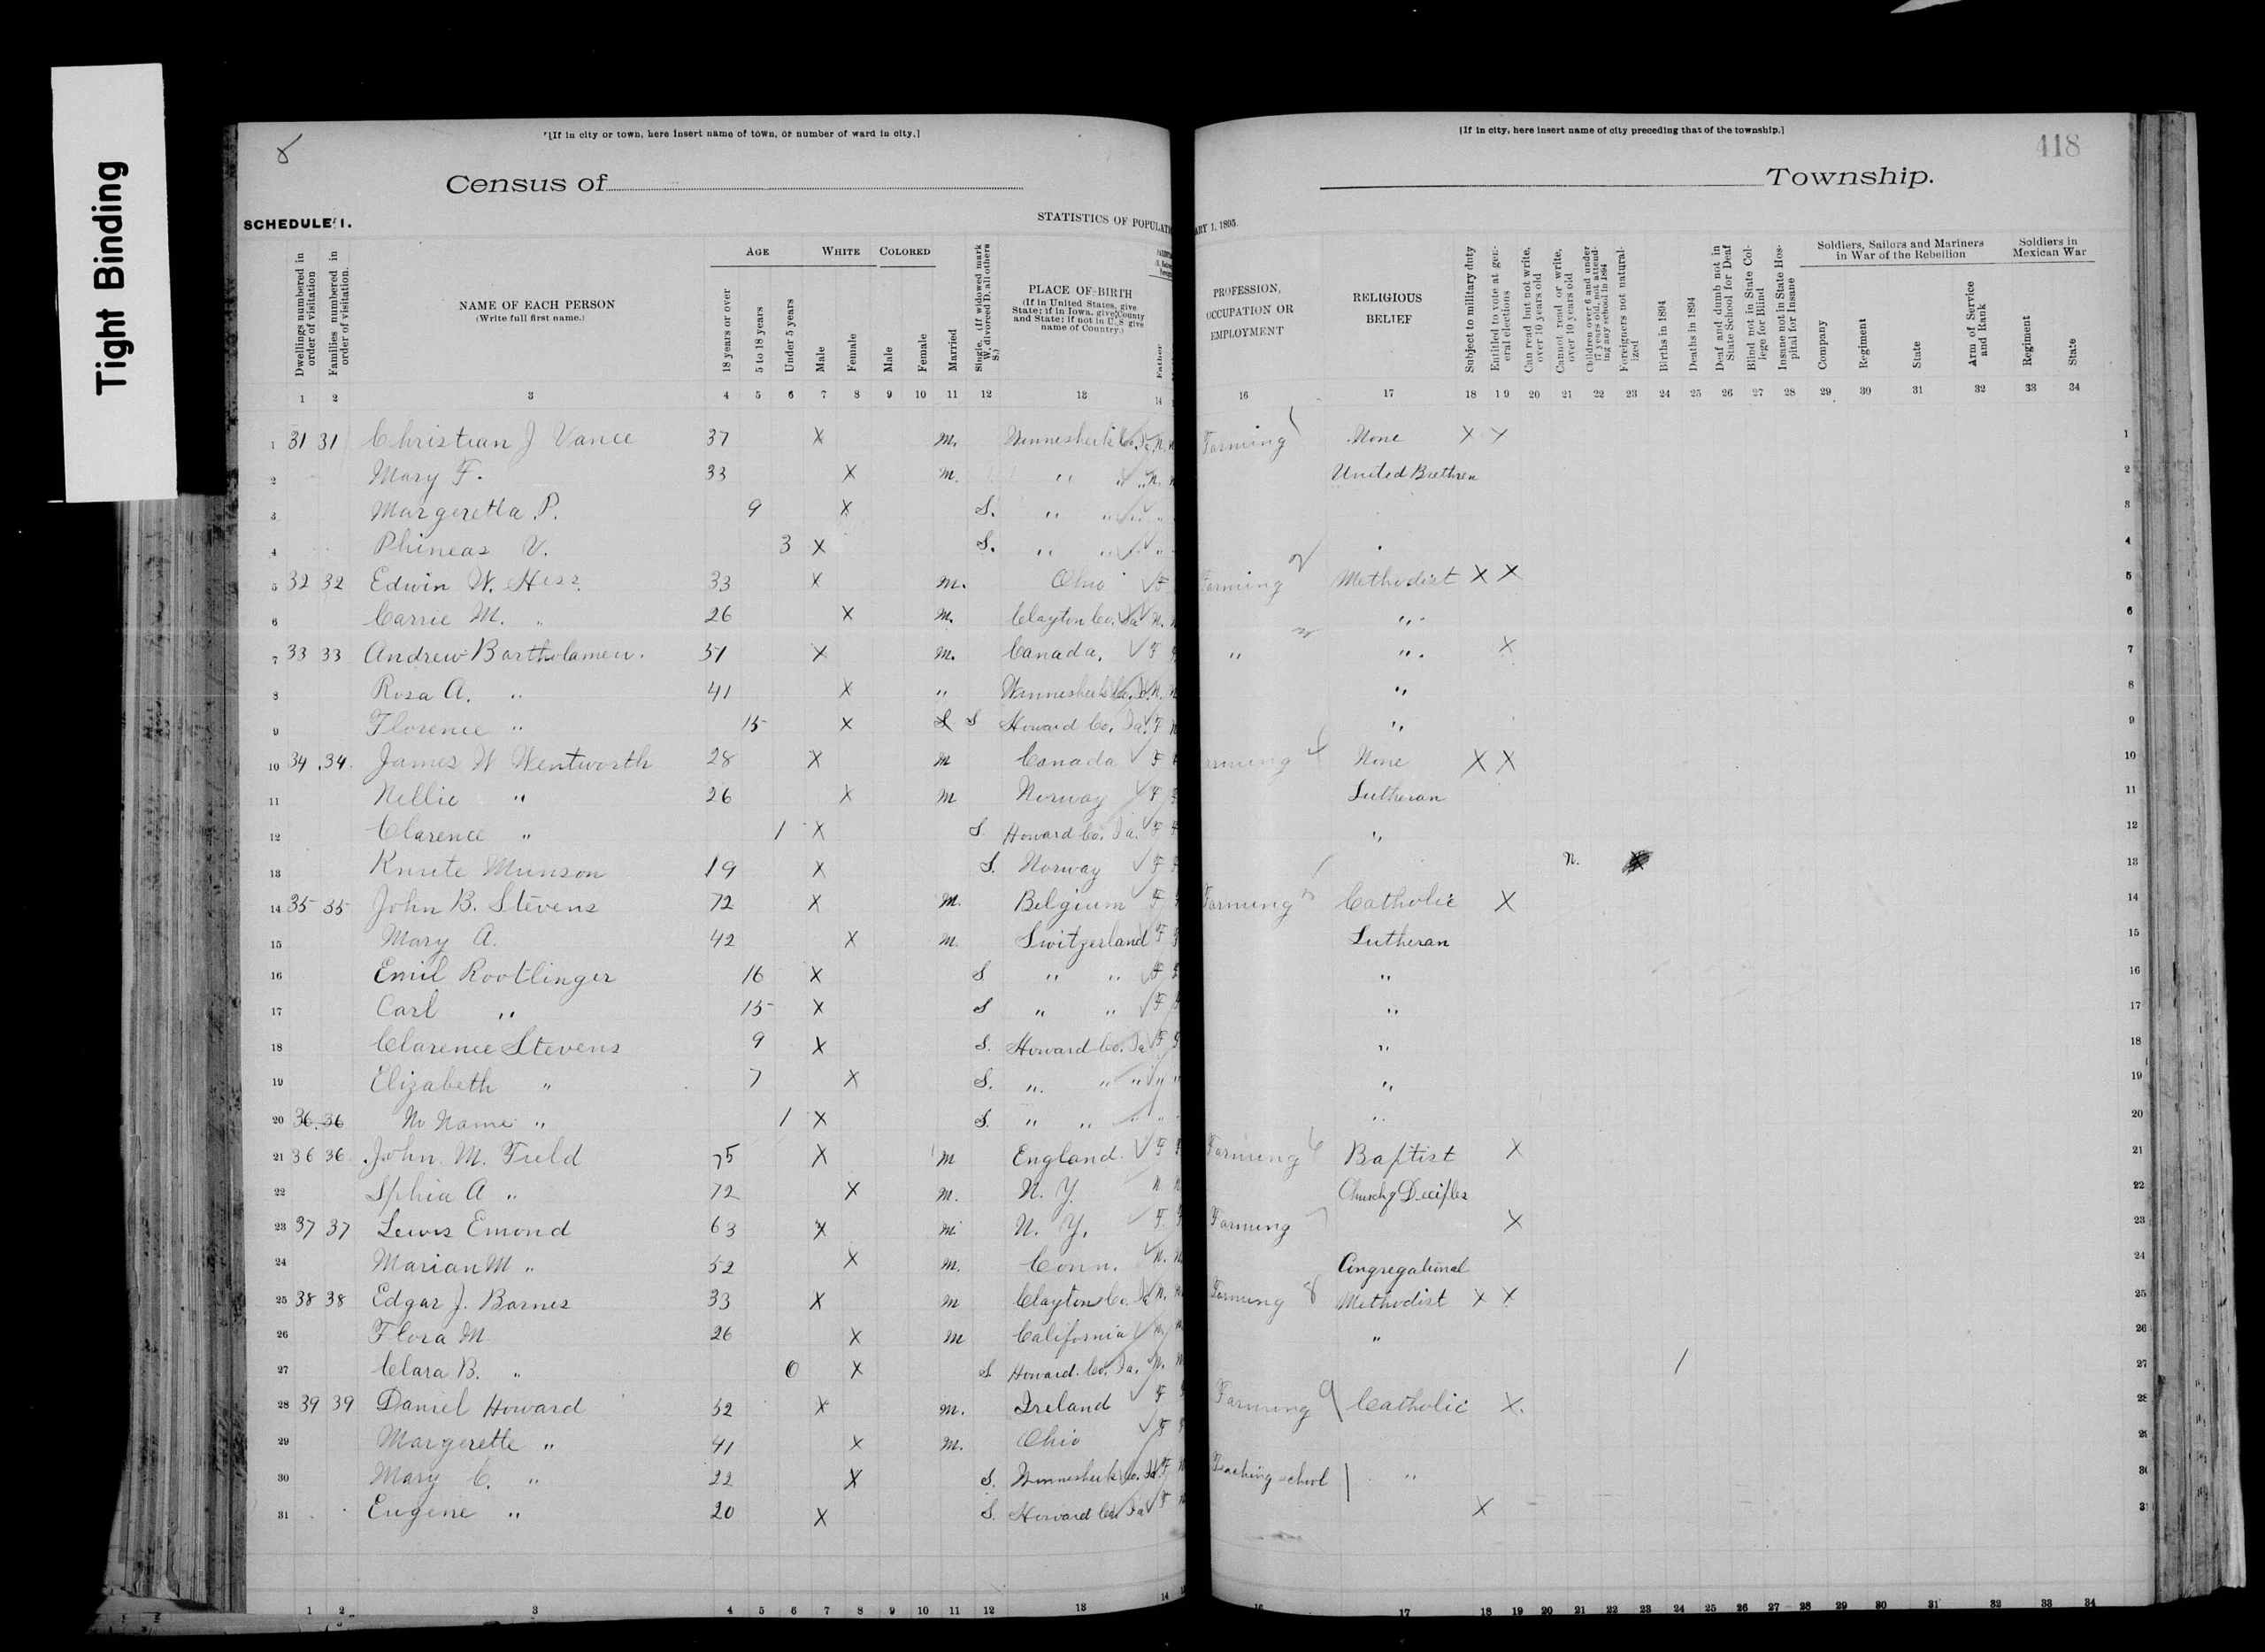 Tight Binding
8
[If in city or town, here insert name of town, or number of ward in city.]
[If in city, here insert name of city preceding that of the township.]
418
Census of
Township.
SCHEDULE 1.
STATISTICS OF POPULATI
ARY 1, 1895.
Dwellings numbered in order of visitation
Families numbered in order of visitation.
NAME OF EACH PERSON
(Write full first name.)
AGE
18 years or over
5 to 18 years
Under 5 years
WHITE
Male
Female
COLORED
Male
Female
Married
Single, (If widowed mark W, divorced D, all others S.)
PLACE OF BIRTH
(If in United States, give State; if in Iowa, give County and State; if not in U. S. give name of Country.)
Father
PROFESSION, OCCUPATION OR EMPLOYMENT
RELIGIOUS BELIEF
Subject to military duty
Entitled to vote at general elections
Can read but not write, over 10 years old
Cannot read or write, over 10 years old
Children over 6 and under 17 years old, not attending any school in 1894
Foreigners not naturalized
Births in 1894
Deaths in 1894
Deaf and dumb not in State School for Deaf
Blind not in State College for Blind
Insane not in State Hospital for Insane
Soldiers, Sailors and Mariners in War of the Rebellion
Company
Regiment
State
Arm of Service and Rank
Soldiers in Mexican War
Regiment
State
1 2 3 4 5 6 7 8 9 10 11 12 13 14 16 17 18 19 20 21 22 23 24 25 26 27 28 29 30 31 32 33 34
1 31 31 Christian J Vance 37 X m. Winnesheik Co. Ia. N. Farming 1 None X X 1
2 Mary F. 33 X m. " " " N. United Brethren 2
3 Margeretta P. 9 X S. " " " " 3
4 Phineas V. 3 X S. " " " " 4
5 32 32 Edwin W. Hess. 33 X m. Ohio F Farming 2 Methodist X X 5
6 Carrie M. " 26 X m. Clayton Co. Ia N. " 6
7 33 33 Andrew Bartholamew. 51 X m. Canada. F " 3 " X 7
8 Rosa A. " 41 X " Winnesheik Co. Ia. N. " 8
9 Florence " 15 X S S Howard Co. Ia. F " 9
10 34 34. James W Wentworth 28 X m Canada F Farming 4 None X X 10
11 Nellie " 26 X m Norway F Lutheran 11
12 Clarence " 1 X S. Howard Co. Ia. F " 12
13 Knute Munson 19 X S. Norway F N. X 13
14 35 35 John B. Stevens 72 X m. Belgium F Farming 5 Catholic X 14
15 Mary A. 42 X m. Switzerland F Lutheran 15
16 Emil Rootlinger 16 X S " " F " 16
17 Carl " 15 X S " " F " 17
18 Clarence Stevens 9 X S. Howard Co. Ia F " 18
19 Elizabeth " 7 X S. " " " " " 19
20 36. 36 No Name " 1 X S. " " " " " 20
21 36 36 John M. Field 75 X m England. F Farming 6 Baptist X 21
22 Sphia A " 72 X m. N. Y. N Church of Deciples 22
23 37 37 Lewis Emond 63 X m. N. Y. F. Farming 7 X 23
24 Marian M " 52 X m. Conn. N. Congregational 24
25 38 38 Edgar J. Barnes 33 X m Clayton Co. Ia N. Farming 8 Methodist X X 25
26 Flora M. 26 X m California N. " 26
27 Clara B. " 0 X S Howard Co. Ia. N. 1 27
28 39 39 Daniel Howard 52 X m. Ireland F Farming 9 Catholic X. 28
29 Margerette " 41 X m. Ohio F
30 Mary C. " 22 X S. Winnesheik Co. Ia. F Teaching school "
31 Eugene " 20 X S. Howard Co. Ia F X
1 2 3 4 5 6 7 8 9 10 11 12 13 14 16 17 18 19 20 21 22 23 24 25 26 27 28 29 30 31 32 33 34